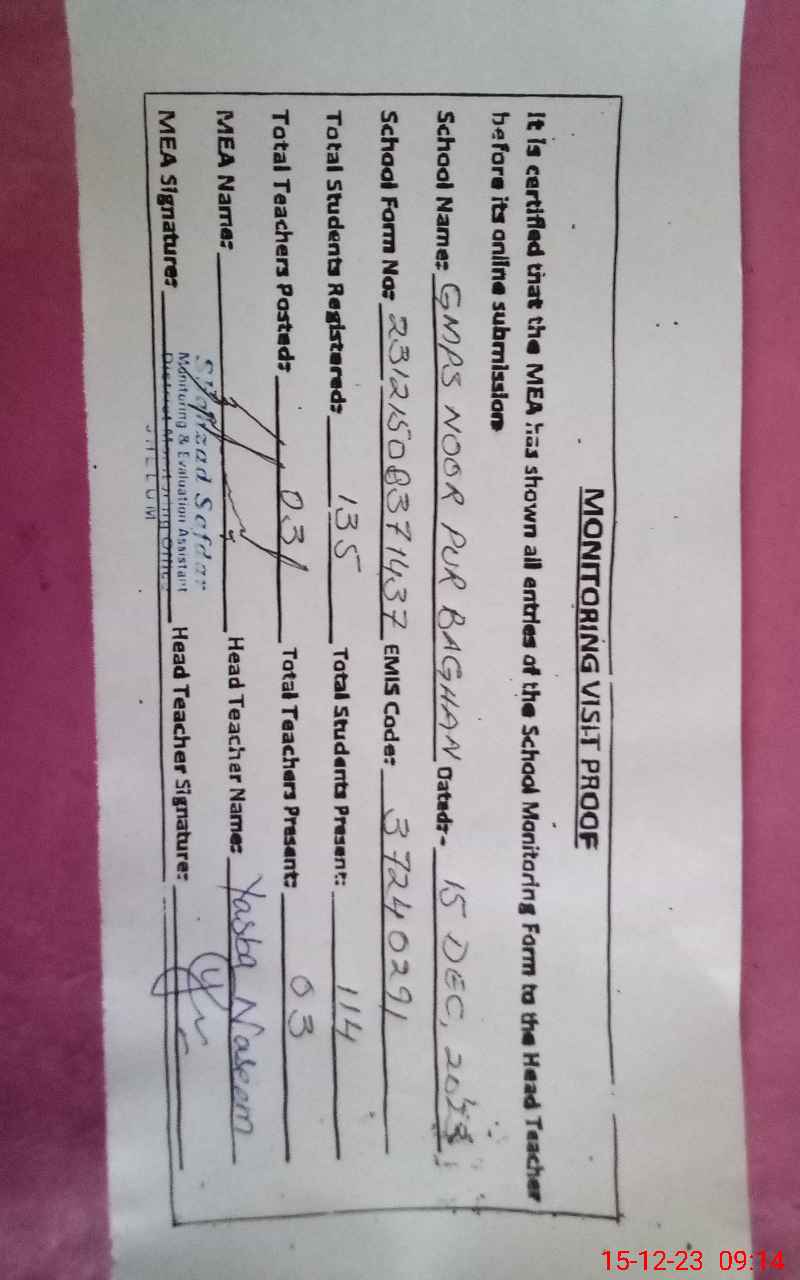 MONITORING VISIT PROOF
It is certified that the MEA has shown all entries of the School Monitoring Form to the Head Teacher
before its online submission
School Name: GMPS NOOR PUR BAGHAN Dated:- 15 DEC, 2023
School Form No: 2312150837 1437 EMIS Code: 37240291
Total Students Registered: 135 Total Students Present: 114
Total Teachers Posted: 03 Total Teachers Present: 03
MEA Name: Head Teacher Name: Yasba Naseem
Shahzad Safdar
Monitoring & Evaluation Assistant
District Monitoring Office
JHELUM
MEA Signature: Head Teacher Signature:
15-12-23 09:14